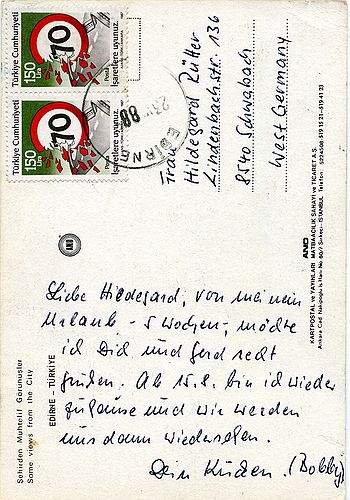 Türkiye Cumhuriyeti
150 Lira
70
Posta
İşaretlere uyunuz.
Türkiye Cumhuriyeti
150 Lira
70
Posta
İşaretlere uyunuz.
EDİRNE
88
Frau
Hildegard Rütter
Lindenbachstr. 136
8540 Schwabach
West Germany
AND
KARTPOSTAL ve YAYINLARI MATBAACILIK SANAYİ ve TİCARET A.Ş.
AND
Şehirden Muhtelif Görünüşler
Some views from the City
EDİRNE - TÜRKİYE
Liebe Hildegard, von meinem
Urlaub - 5 Wochen, möchte
ich Dich und Gerd recht
grüßen. Ab 15.8. bin ich wieder
zuhause und wir werden
uns dann wiedersehen.
Dein (Bobby)